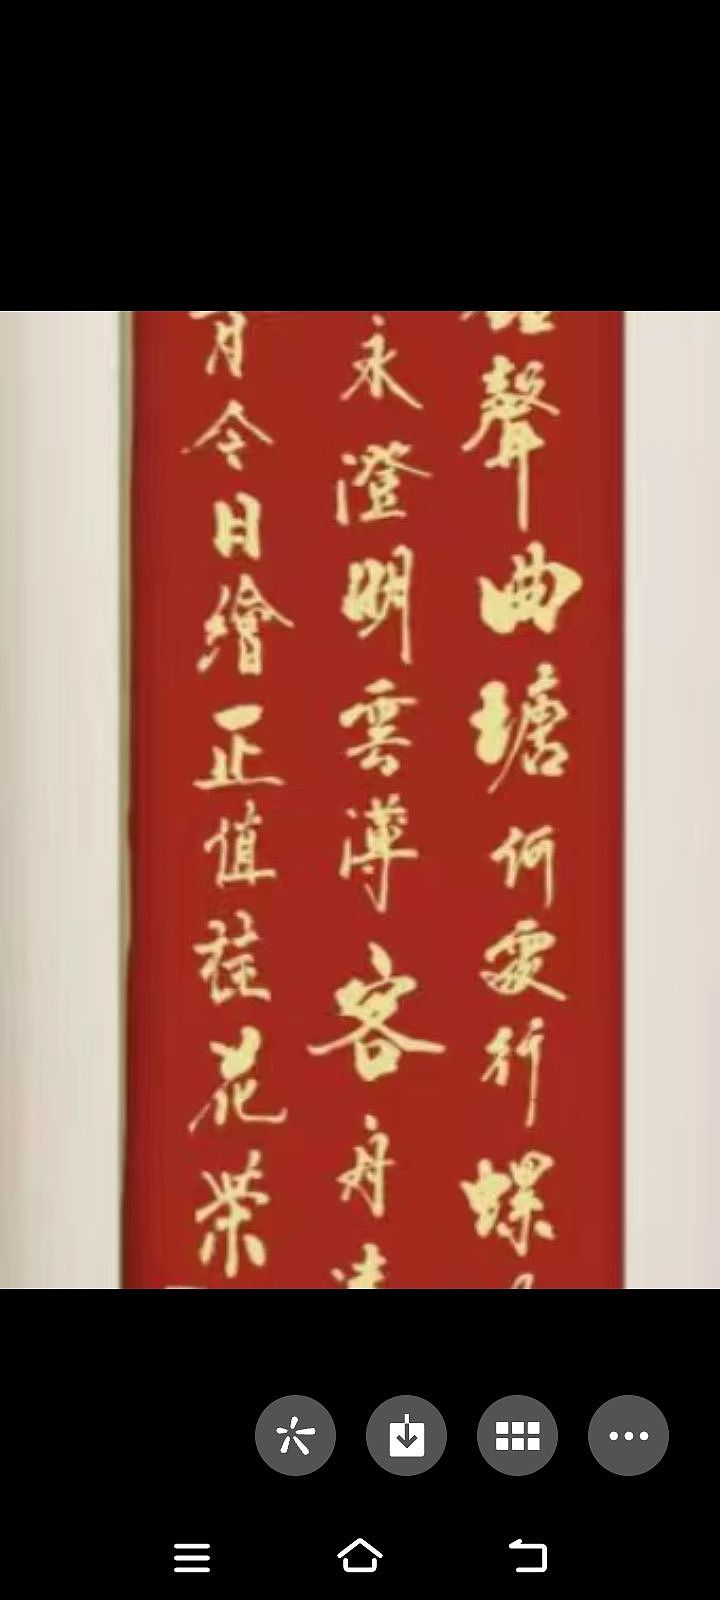 聲曲塘何處行螺
永澄明雲薄客舟
月令日繪正值桂花榮